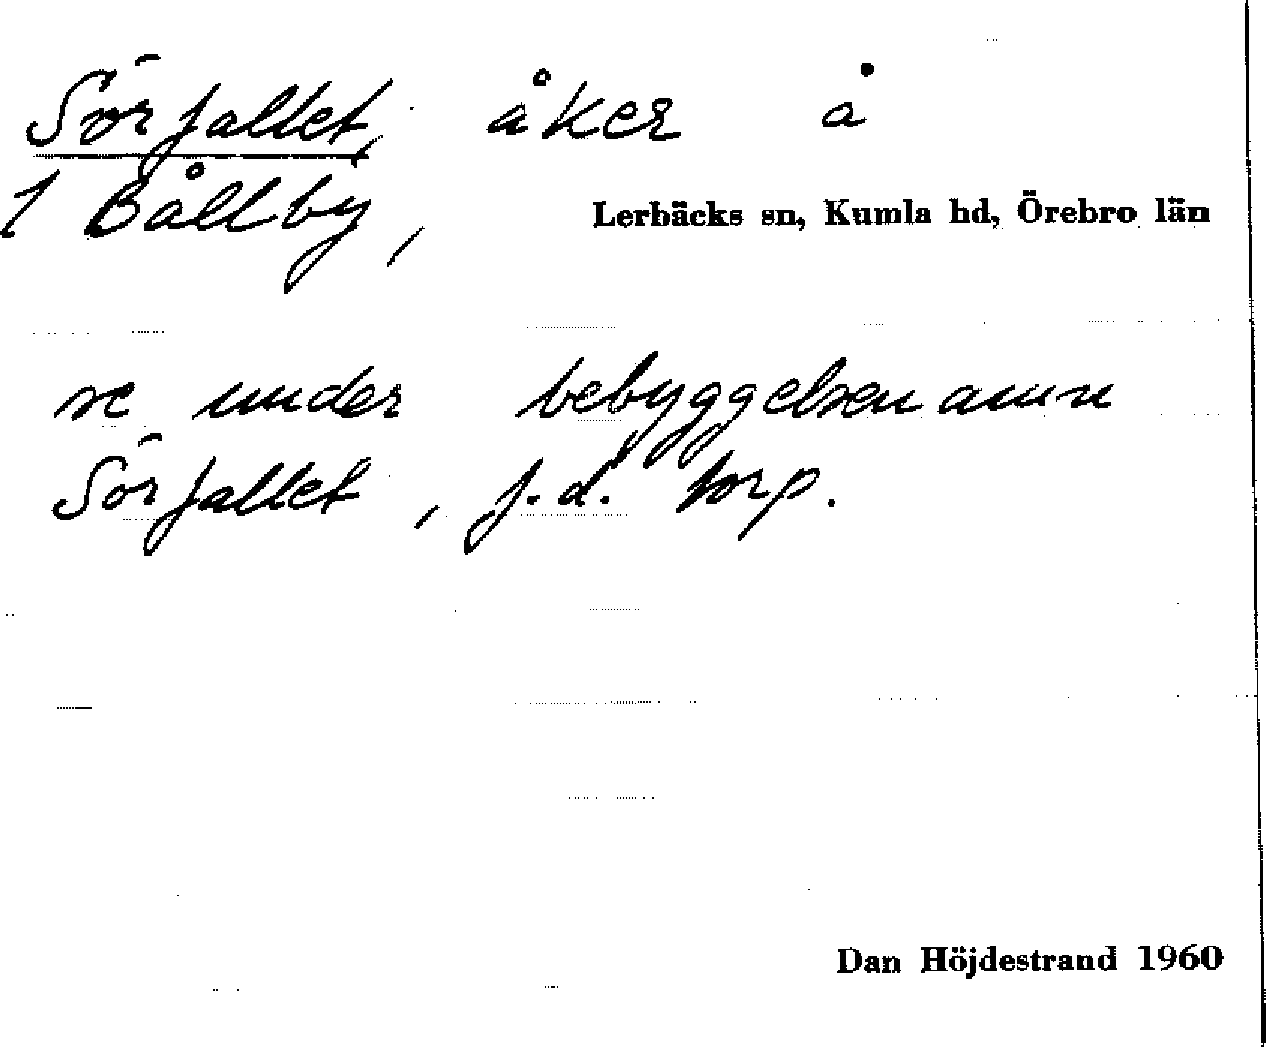 Sörfallet, åker å
1 Bållby,
Lerbäcks sn, Kumla hd, Örebro län
se under bebyggelsenamn
Sörfallet, f.d. torp.
Dan Höjdestrand 1960